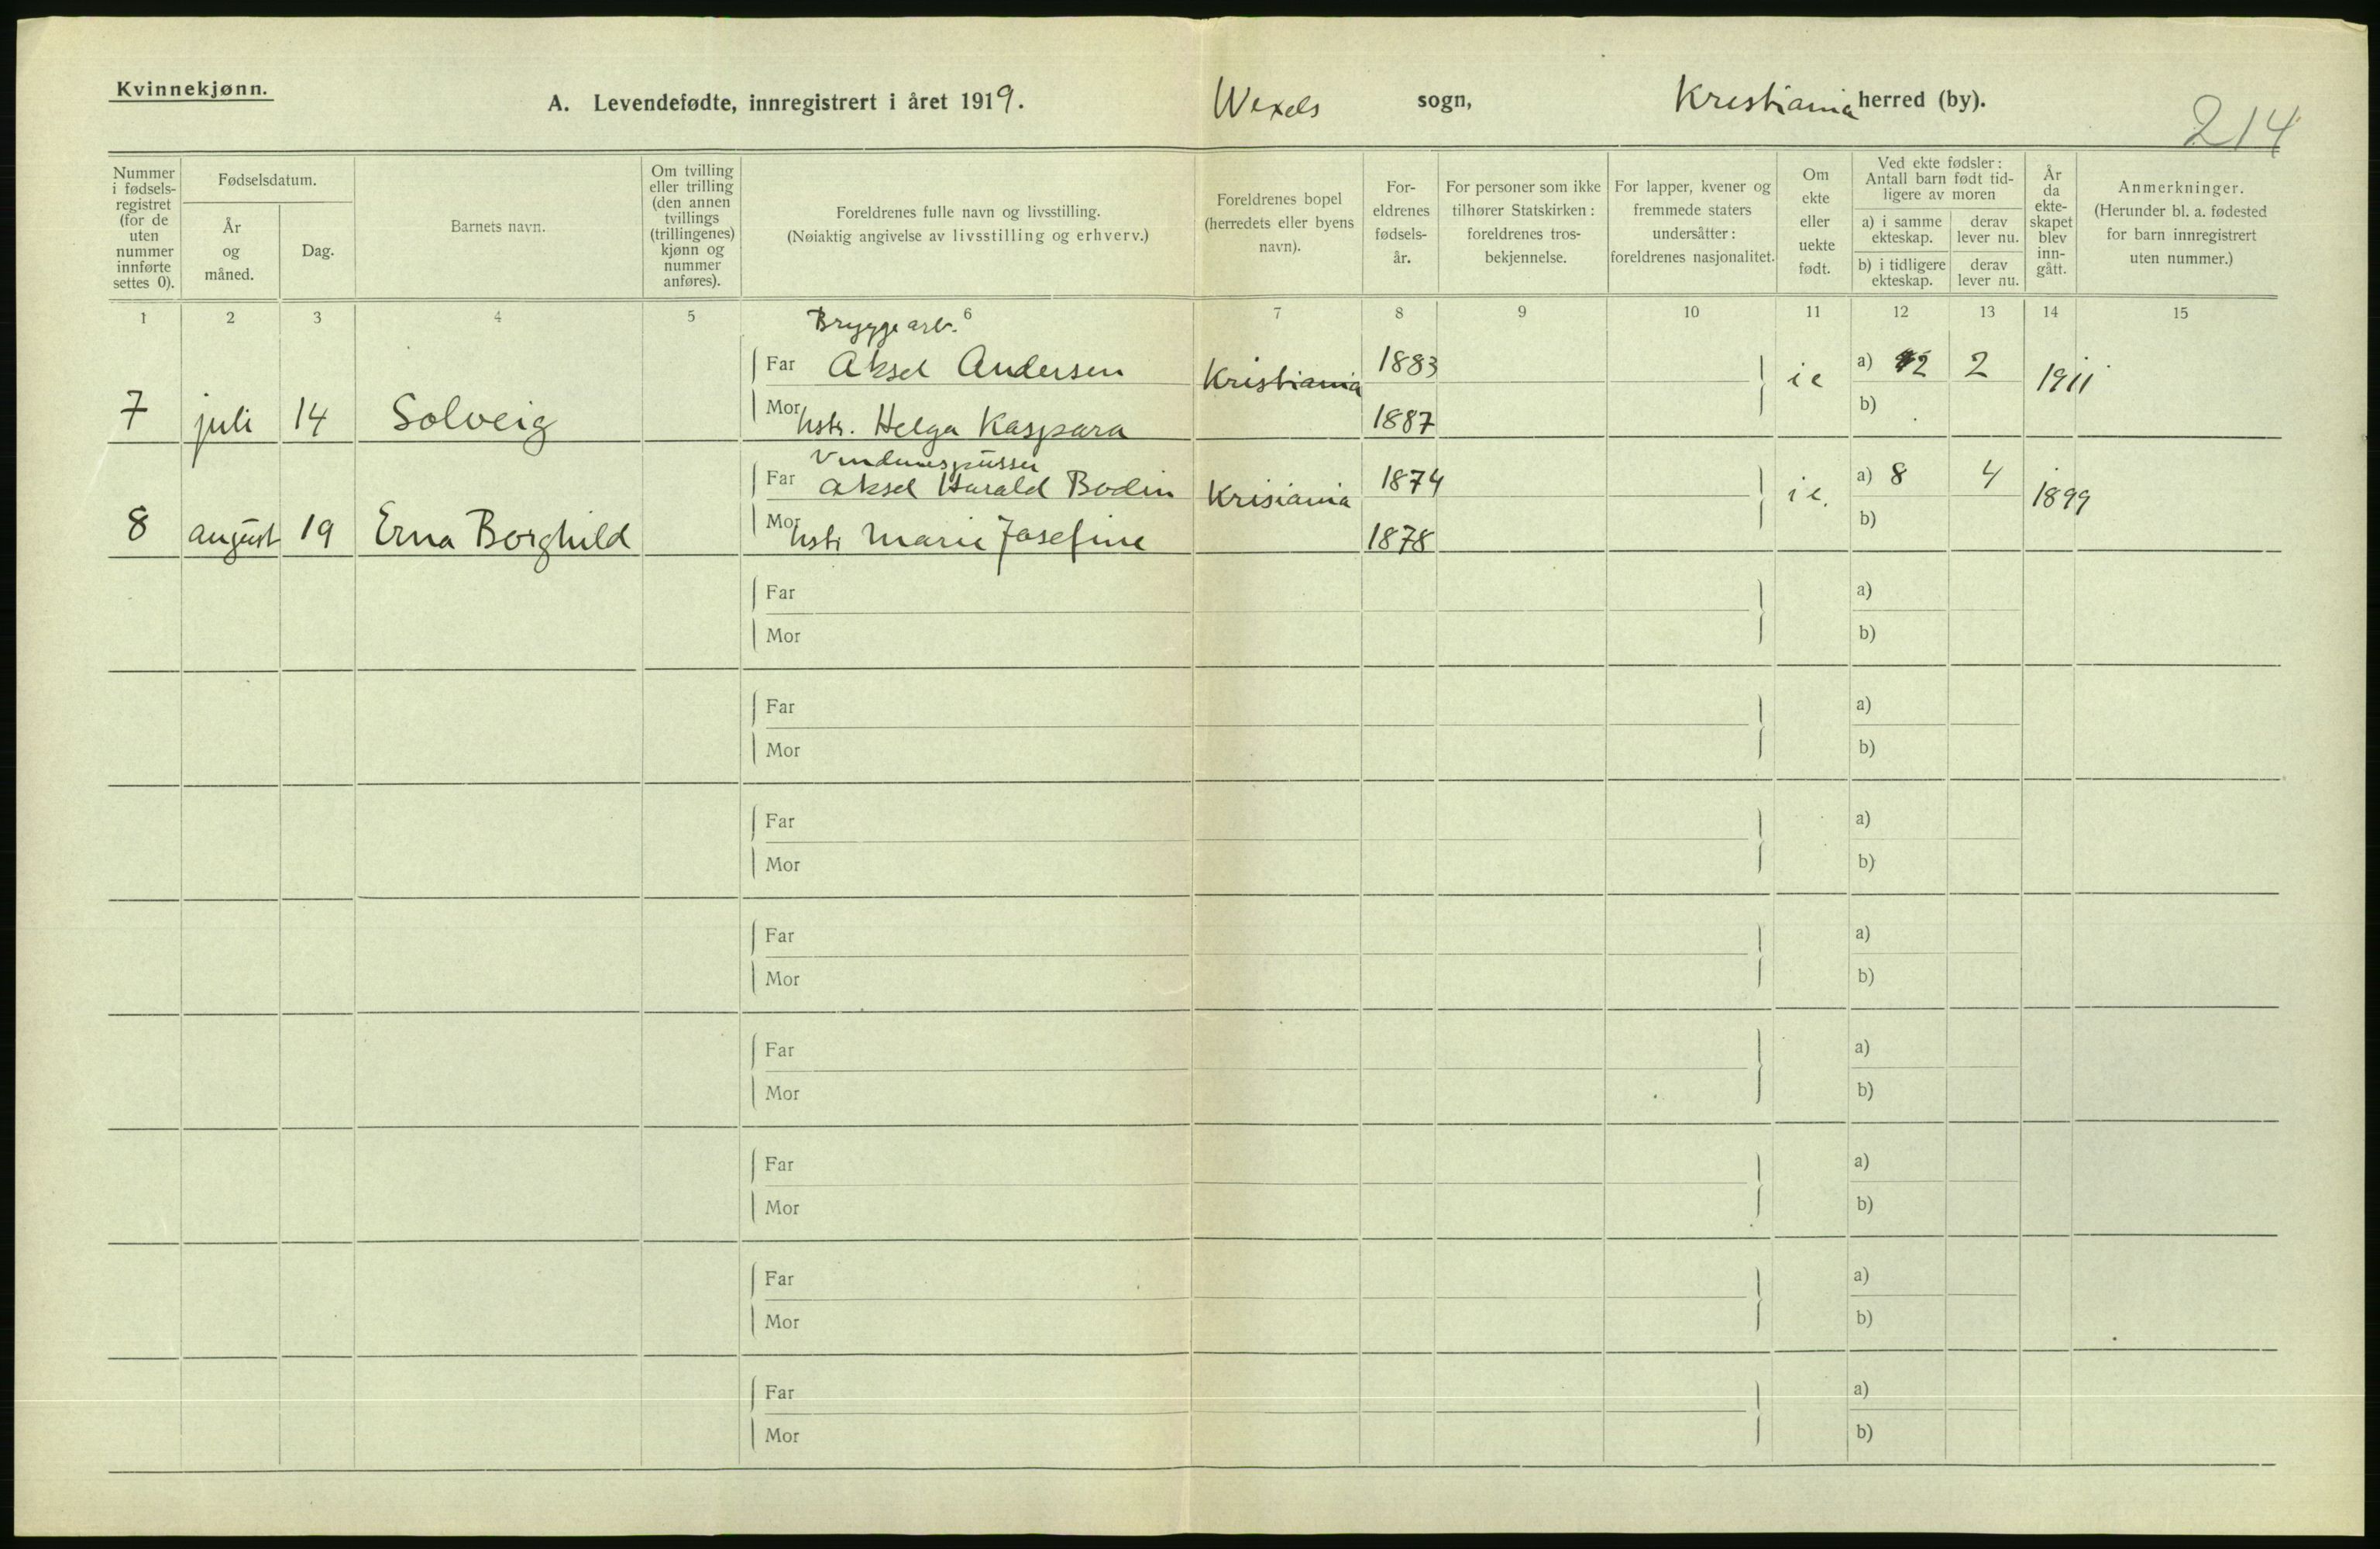 Kvinnekjønn.
A. Levendefødte, innregistrert i året 1919. Wexels sogn, Kristiania herred (by).
214
Nummer i fødsels-registret (for de uten nummer innførte settes 0).
Fødselsdatum.
År og måned.
Dag.
Barnets navn.
Om tvilling eller trilling (den annen tvillings (trillingenes) kjønn og nummer anføres).
Foreldrenes fulle navn og livsstilling.
(Nøiaktig angivelse av livsstilling og erhverv.)
Foreldrenes bopel (herredets eller byens navn).
For-eldrenes fødsels-år.
For personer som ikke tilhører Statskirken: foreldrenes tros-bekjennelse.
For lapper, kvener og fremmede staters undersåtter: foreldrenes nasjonalitet.
Om ekte eller uekte født.
Ved ekte fødsler: Antall barn født tid-ligere av moren
a) i samme ekteskap.
derav lever nu.
b) i tidligere ekteskap.
derav lever nu.
År da ekte-skapet blev inn-gått.
Anmerkninger.
(Herunder bl. a. fødested for barn innregistrert uten nummer.)
1 2 3 4 5 6 7 8 9 10 11 12 13 14 15
Bryggearb.
Far Aksel Andersen Kristiania 1883 ie a) 2 2 1911
7 juli 14 Solveig Mor hstr. Helga Kaspara 1887 b)
Far Aksel Harald Bodin Krisiania 1874 ie. a) 8 4 1899
8 august 19 Erna Borghild Mor hstr Marie Josefine 1878 b)
Far a)
Mor b)
Far a)
Mor b)
Far a)
Mor b)
Far a)
Mor b)
Far a)
Mor b)
Far a)
Mor b)
Far a)
Mor b)
Far a)
Mor b)